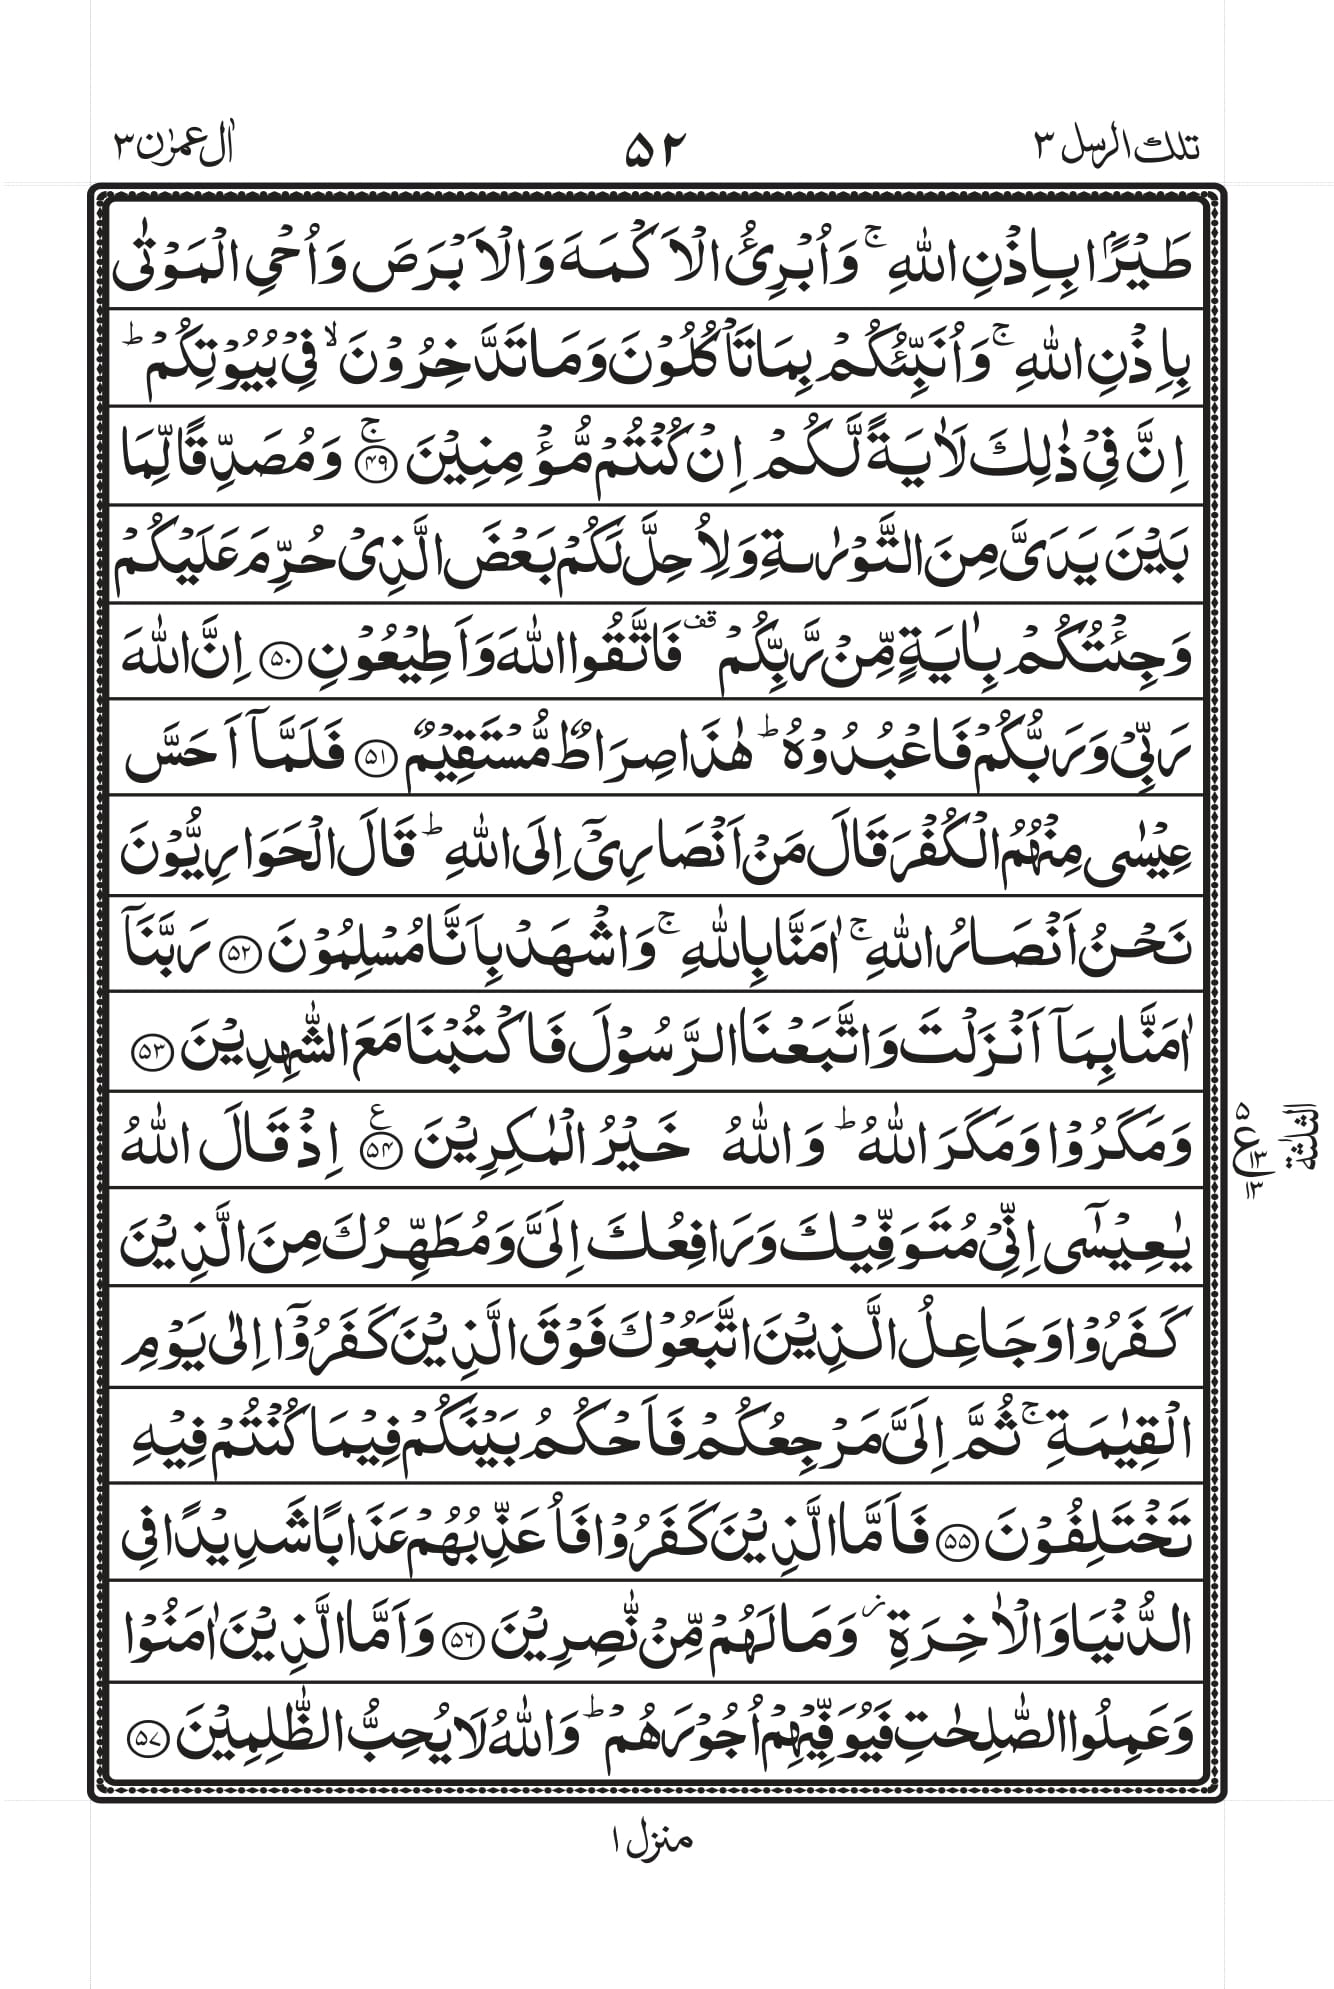 تلك الرسل ٣
٥٢
اٰل عمرٰن ٣
طَيْرًۢا بِاِذْنِ اللّٰهِ ۚ وَاُبْرِئُ الْاَكْمَهَ وَالْاَبْرَصَ وَاُحْيِ الْمَوْتٰى
بِاِذْنِ اللّٰهِ ۚ وَاُنَبِّئُكُمْ بِمَا تَاْكُلُوْنَ وَمَا تَدَّخِرُوْنَ ۙ فِيْ بُيُوْتِكُمْ ؕ
اِنَّ فِيْ ذٰلِكَ لَاٰيَةً لَّكُمْ اِنْ كُنْتُمْ مُّؤْمِنِيْنَ ۚ ﴿۴۹﴾ وَمُصَدِّقًا لِّمَا
بَيْنَ يَدَيَّ مِنَ التَّوْرٰىةِ وَلِاُحِلَّ لَكُمْ بَعْضَ الَّذِيْ حُرِّمَ عَلَيْكُمْ
وَجِئْتُكُمْ بِاٰيَةٍ مِّنْ رَّبِّكُمْ قف فَاتَّقُوا اللّٰهَ وَاَطِيْعُوْنِ ﴿۵۰﴾ اِنَّ اللّٰهَ
رَبِّيْ وَرَبُّكُمْ فَاعْبُدُوْهُ ؕ هٰذَا صِرَاطٌ مُّسْتَقِيْمٌ ﴿۵۱﴾ فَلَمَّاۤ اَحَسَّ
عِيْسٰى مِنْهُمُ الْكُفْرَ قَالَ مَنْ اَنْصَارِيْۤ اِلَى اللّٰهِ ؕ قَالَ الْحَوَارِيُّوْنَ
نَحْنُ اَنْصَارُ اللّٰهِ ۚ اٰمَنَّا بِاللّٰهِ ۚ وَاشْهَدْ بِاَنَّا مُسْلِمُوْنَ ﴿۵۲﴾ رَبَّنَاۤ
اٰمَنَّا بِمَاۤ اَنْزَلْتَ وَاتَّبَعْنَا الرَّسُوْلَ فَاكْتُبْنَا مَعَ الشّٰهِدِيْنَ ﴿۵۳﴾
وَمَكَرُوْا وَمَكَرَ اللّٰهُ ؕ وَاللّٰهُ خَيْرُ الْمٰكِرِيْنَ ع ﴿۵۴﴾ اِذْ قَالَ اللّٰهُ
۵ ع ۱۳ ۱۳
الثلٰثة
يٰعِيْسٰۤى اِنِّيْ مُتَوَفِّيْكَ وَرَافِعُكَ اِلَيَّ وَمُطَهِّرُكَ مِنَ الَّذِيْنَ
كَفَرُوْا وَجَاعِلُ الَّذِيْنَ اتَّبَعُوْكَ فَوْقَ الَّذِيْنَ كَفَرُوْۤا اِلٰى يَوْمِ
الْقِيٰمَةِ ۚ ثُمَّ اِلَيَّ مَرْجِعُكُمْ فَاَحْكُمُ بَيْنَكُمْ فِيْمَا كُنْتُمْ فِيْهِ
تَخْتَلِفُوْنَ ﴿۵۵﴾ فَاَمَّا الَّذِيْنَ كَفَرُوْا فَاُعَذِّبُهُمْ عَذَابًا شَدِيْدًا فِي
الدُّنْيَا وَالْاٰخِرَةِ ز وَمَا لَهُمْ مِّنْ نّٰصِرِيْنَ ﴿۵۶﴾ وَاَمَّا الَّذِيْنَ اٰمَنُوْا
وَعَمِلُوا الصّٰلِحٰتِ فَيُوَفِّيْهِمْ اُجُوْرَهُمْ ؕ وَاللّٰهُ لَا يُحِبُّ الظّٰلِمِيْنَ ﴿۵۷﴾
منزل ۱